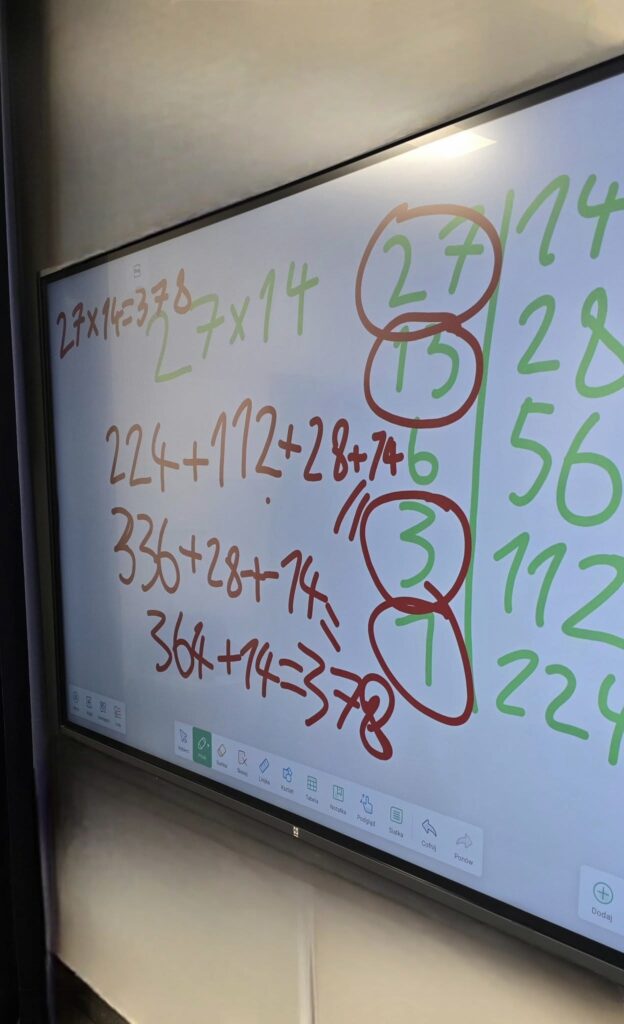 27×14=378
27×14
224+112+28+14
=
336+28+14
=
364+14=378
27 | 14
13 | 28
6 | 56
3 | 112
1 | 224
Cofnij
Ponów
Dodaj
Tabela
Notatka
Podgląd
Siatka
Linijka
Kształt